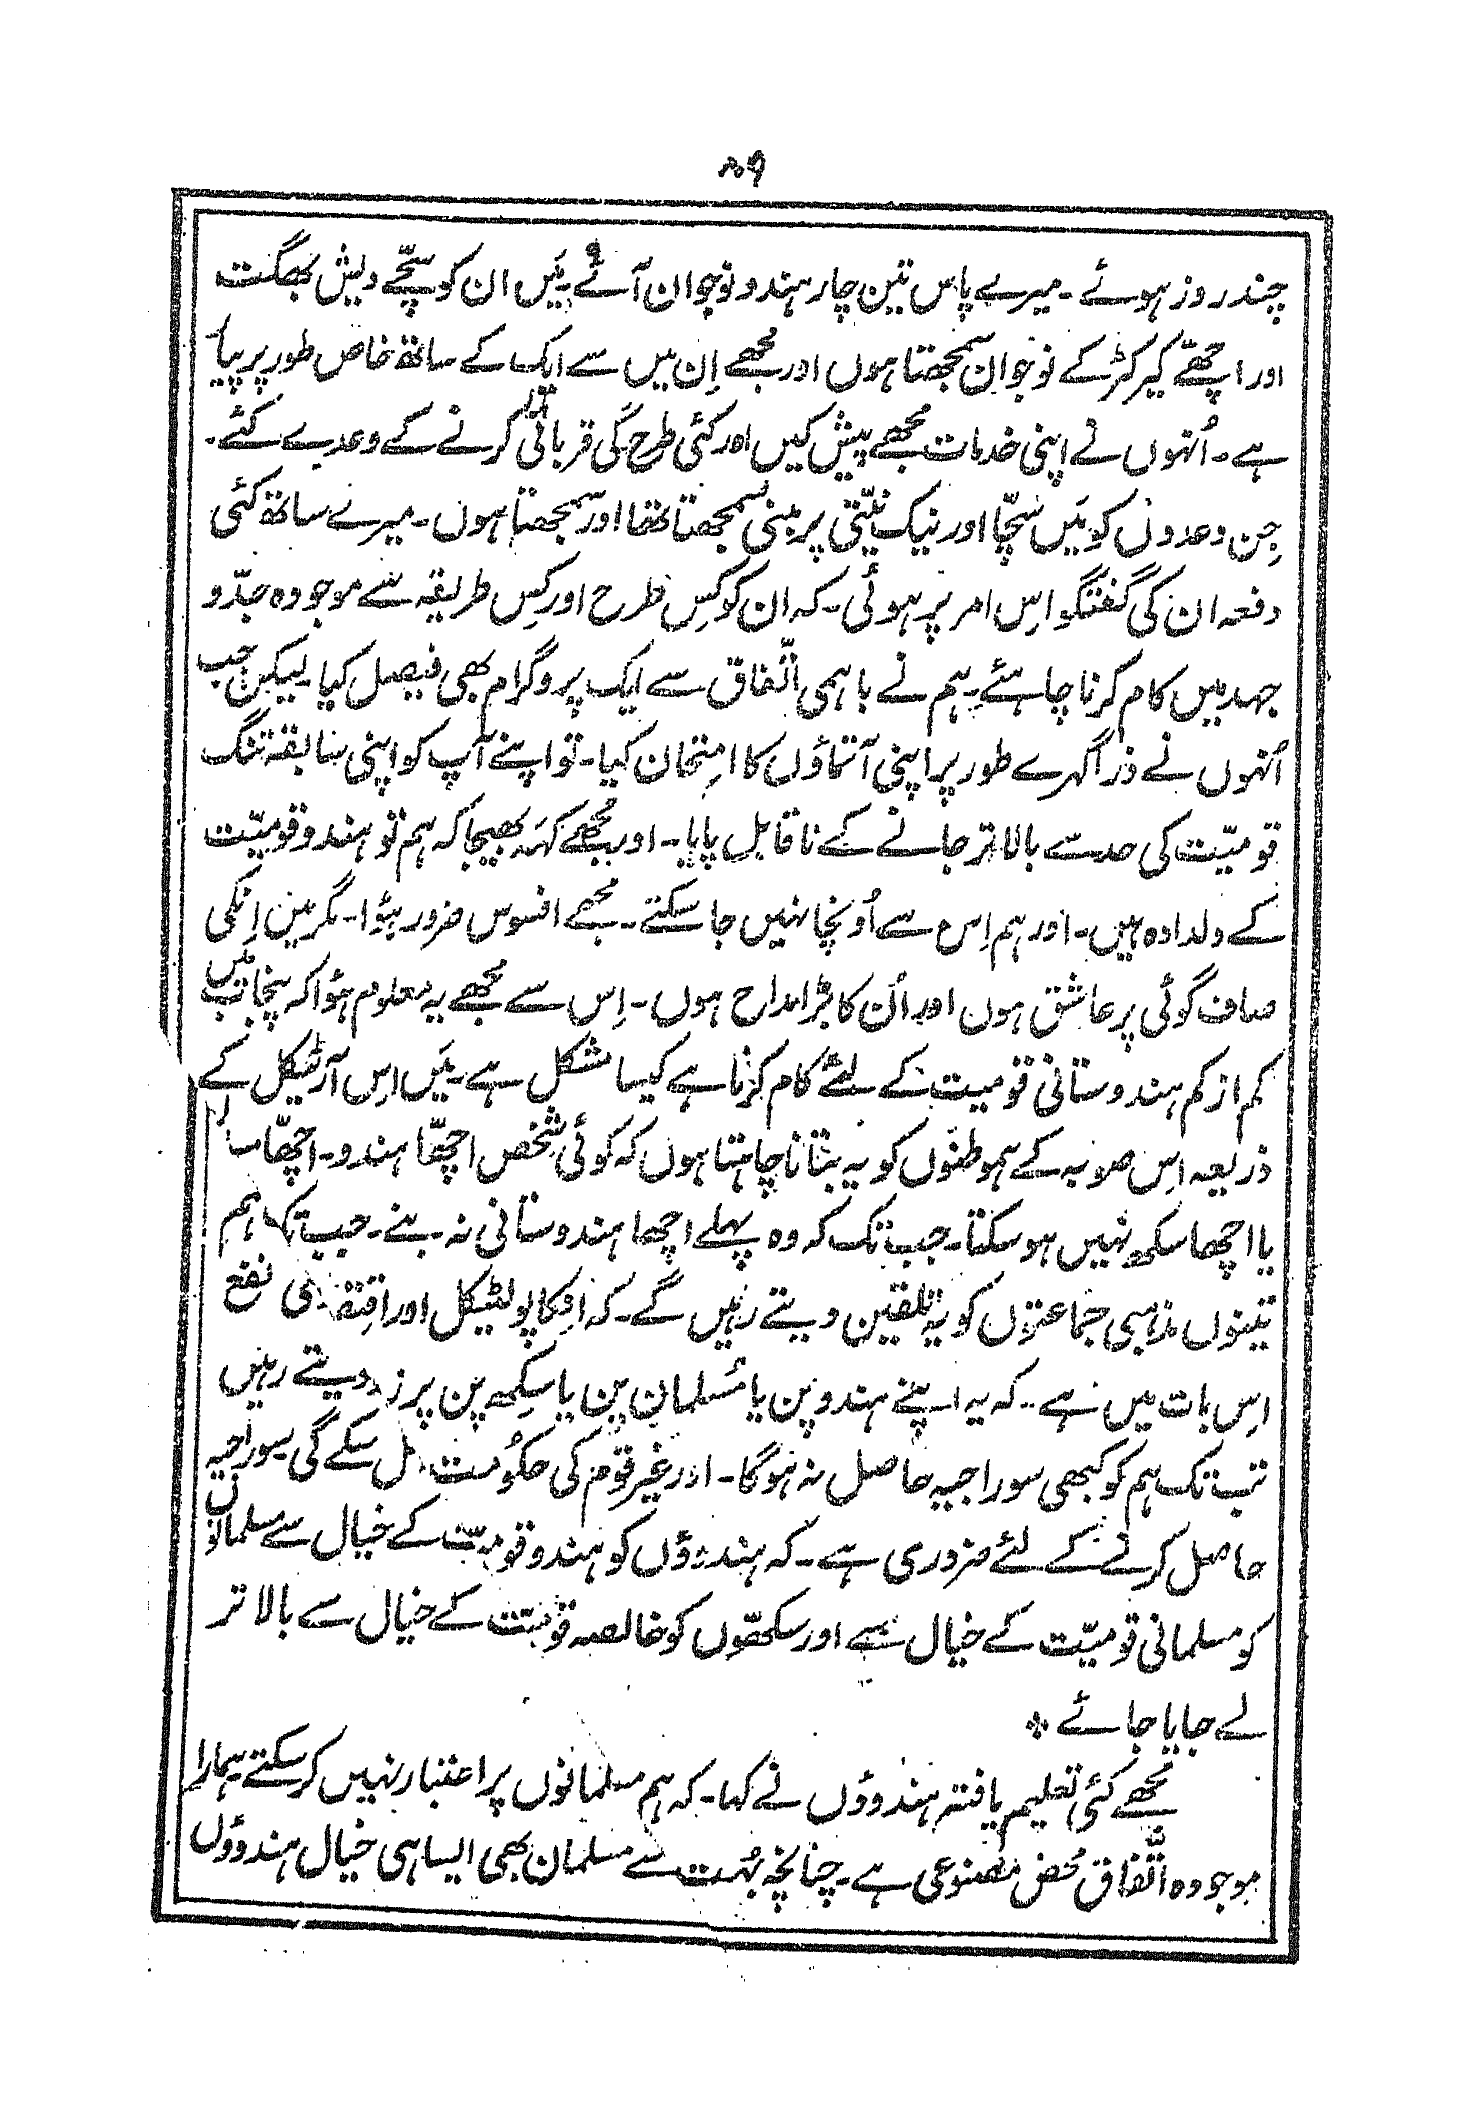 ۸۹
چند روز ہوئے۔ میرے پاس تین چار ہندو نوجوان آئے مَیں ان کو سچّے دیش بھگت
اور اچھّے کیرکٹر کے نوجوان سمجھتا ہوں اور مجھے اِن میں سے ایک کے ساتھ خاص طور پر پیار
ہے۔ اُنہوں نے اپنی خدمات مجھے پیش کیں اور کئی طرح کی قربانی کرنے کے وعدے کئے۔
جِن وعدوں کو مَیں سچّا اور نیک نیّتی پر مبنی سمجھتا تھا اور سمجھتا ہوں۔ میرے ساتھ کئی
دفعہ ان کی گفتگو اِس امر پر ہوئی۔ کہ ان کو کِس طرح اور کِس طریقہ سے موجودہ جدّو
جہد میں کام کرنا چاہئے۔ ہم نے باہمی اتّفاق سے ایک پروگرام بھی فیصل کیا۔ لیکن جب
اُنہوں نے ذرا گہرے طور پر اپنی آتماؤں کا امِتحان کیا۔ تو اپنے آپ کو اپنی سابقہ تنگ
قومیّت کی حد سے بالاتر جانے کے ناقابل پایا۔ اور مجھے کہہ بھیجا کہ ہم تو ہندو قومیّت
کے ولدادہ ہیں۔ اور ہم اِس سے اُونچا نہیں جا سکتے۔ مجھے افسوس ضرور ہؤا۔ مگر میں اِنکی
صاف گوئی پر عاشق ہوں اور اُن کا بڑا مداح ہوں۔ اِس سے مجھے یہ معلوم ہؤا کہ پنجاب میں
کم از کم ہندوستانی قومیت کے لئے کام کرنا ہے کیسا مشکل ہے۔ مَیں اِس آرٹیکل کے
ذریعہ اِس صوبہ کے ہموطنوں کو یہ بتانا چاہتا ہوں کہ کوئی شخص اچھّا ہندو۔ اچھّا
یا اچھا سکھ نہیں ہو سکتا۔ جب تک کہ وہ پہلے اچھا ہندوستانی نہ بنے۔ جب تک ہم
تینوں مذہبی جماعتوں کو یہ تلقین دیتے رہیں گے۔ کہ اُنکا پولٹیکل اور نفع
اِس بات میں ہے۔ کہ یہ اپنے ہندو پن یا مُسلمان پن یا سِکھ پن پر زور دیتے رہیں
تب تک ہم کو کبھی سوراجیہ حاصل نہ ہوگا۔ اور غیر قوم کی حکُومت مل سکے گی سوراجیہ
حاصل کرنے کے لئے ضروری ہے۔ کہ ہندوؤں کو ہندو قومیّت کے خیال سے مسلمانوں
کو مسلمانی قومیّت کے خیال سے اور سکھّوں کو خالصہ قومیّت کے خیال سے بالا تر
لے جایا جائے ٭
مجھے کئی تعلیم یافتہ ہندوؤں نے کہا۔ کہ ہم مسلمانوں پر اعتبار نہیں کر سکتے۔ ہمارا
موجودہ اتّفاق محض مصنوعی ہے۔ چنانچہ بہُت سے مسلمان بھی ایسا ہی خیال ہندوؤں